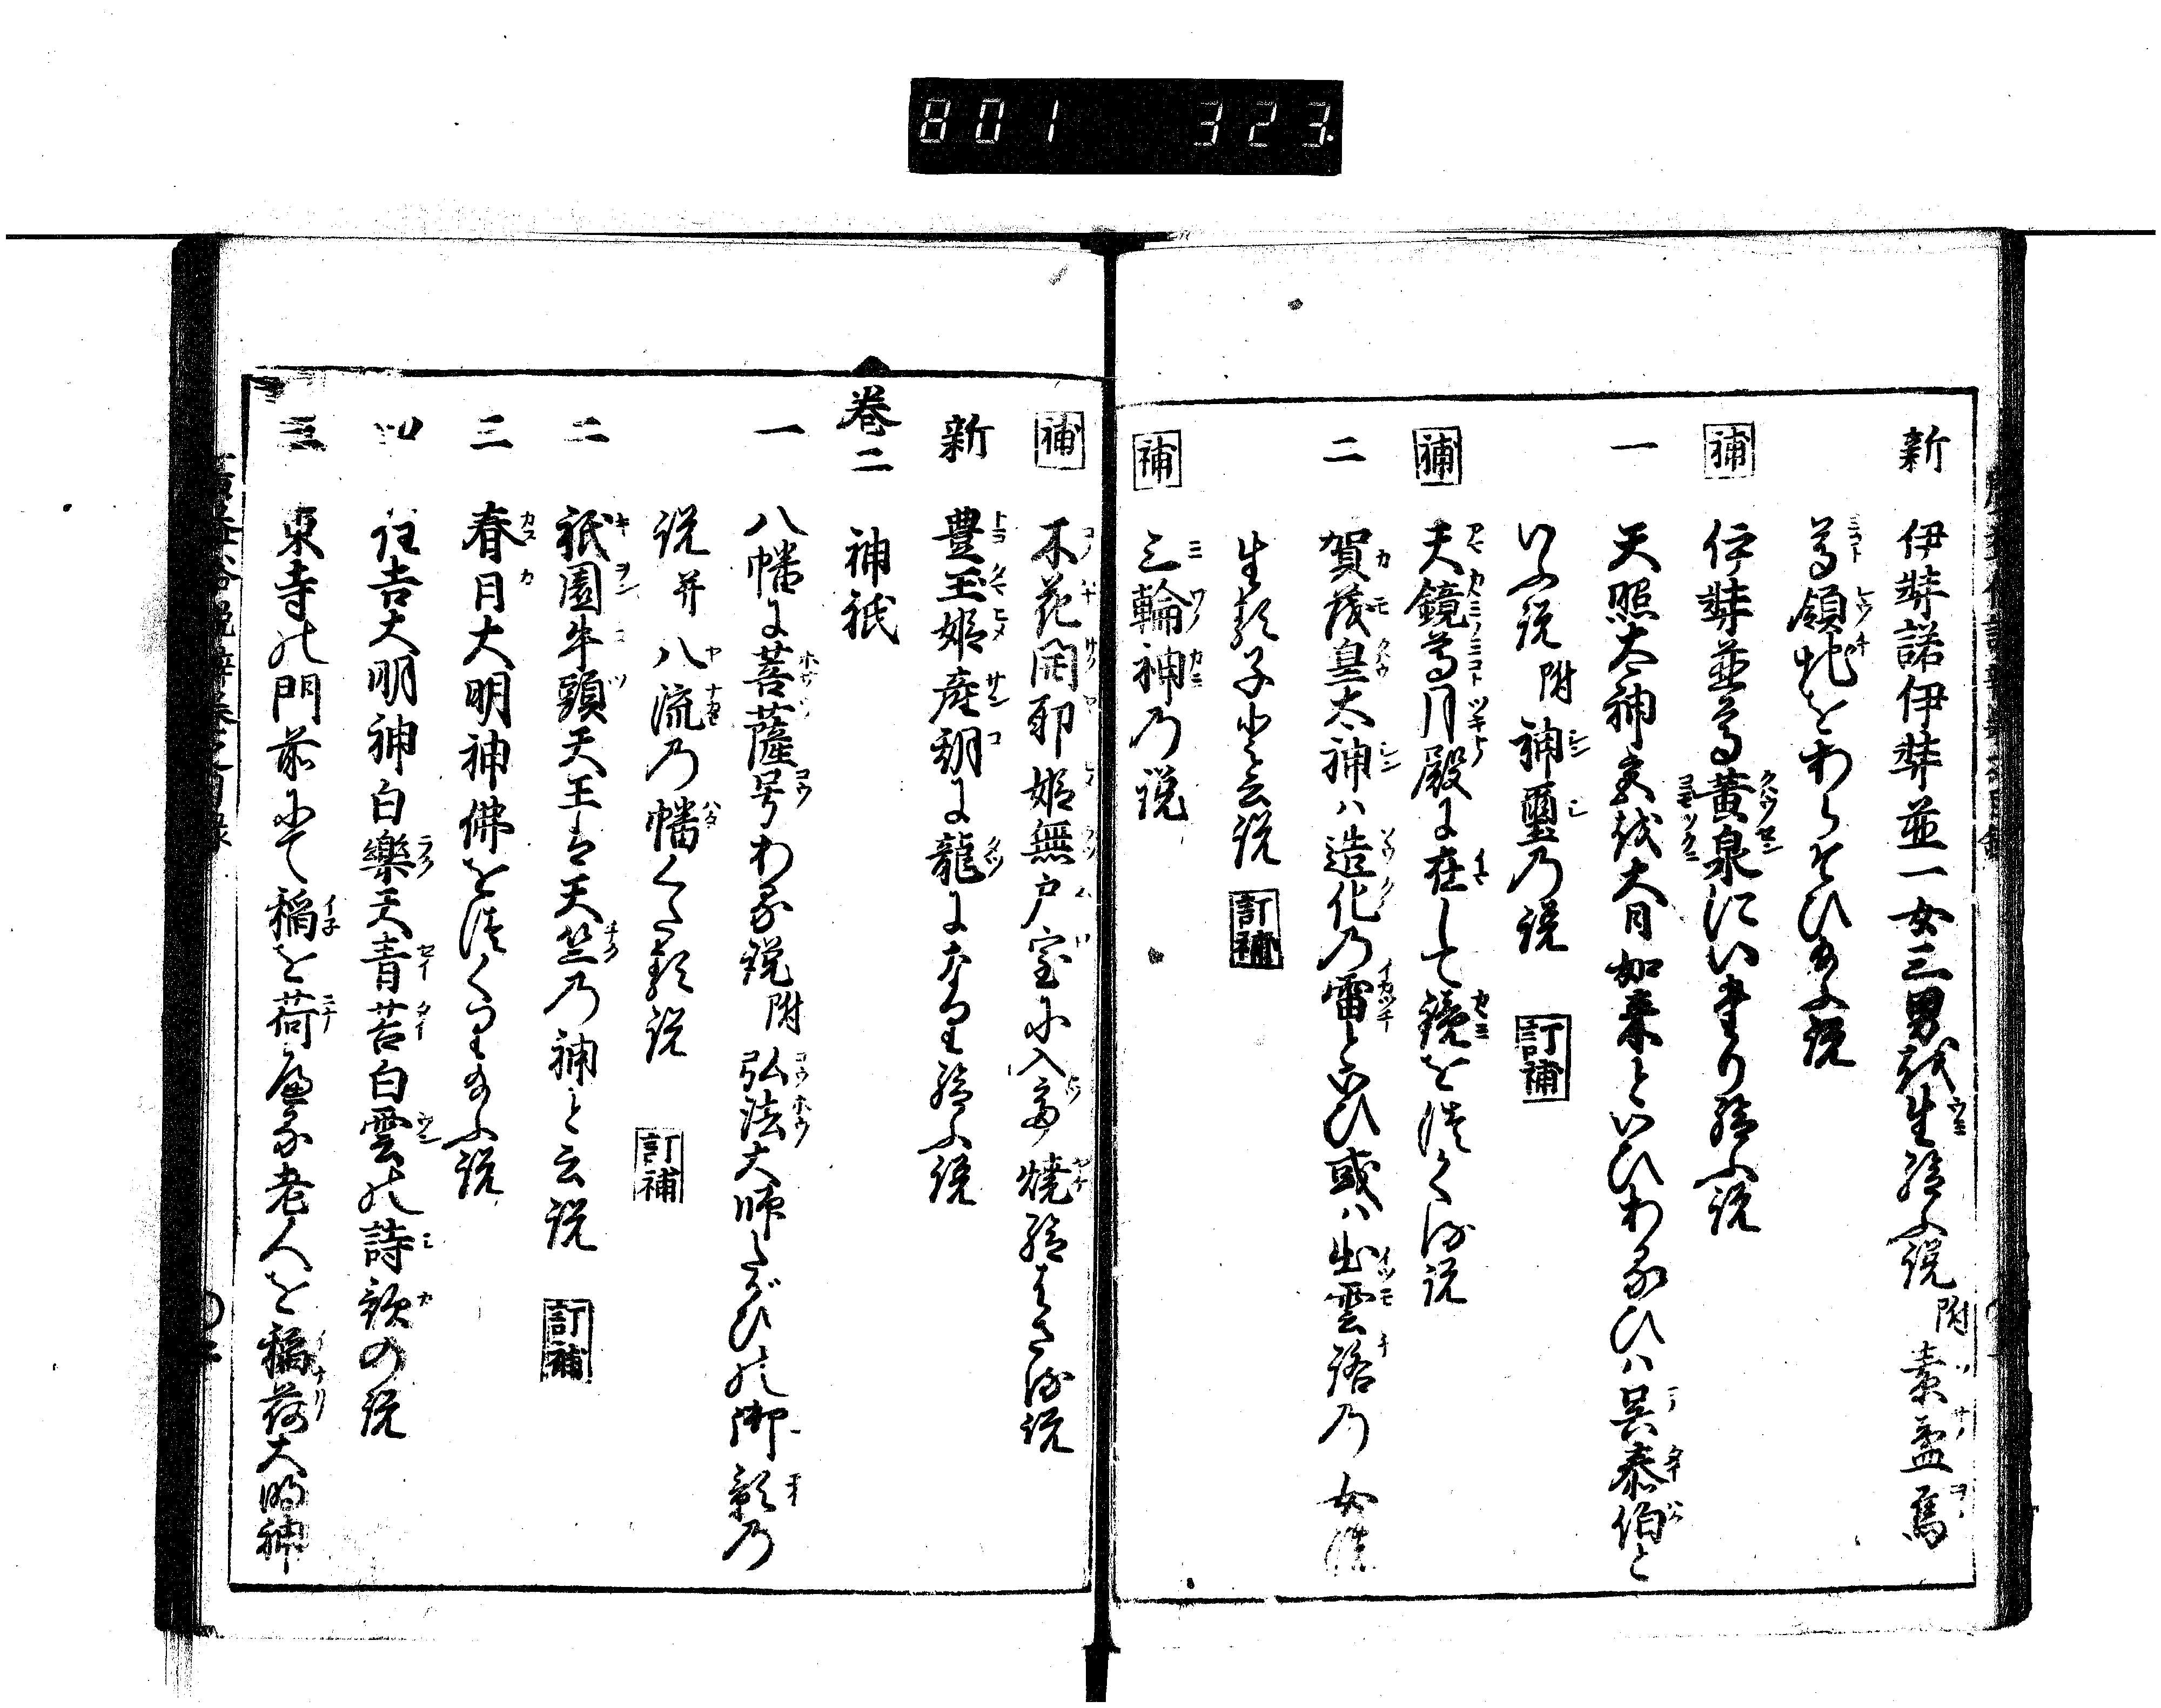 801 323
新 伊弉諾伊弉並一女三男を生給ふ説 附 素盞烏
尊領地をあらそひ給ふ説
補 伊弉並尊黄泉にいまり給ふ説
一 天照太神或大日如来といひあるひハ呉泰伯と
いふ説 附 神璽乃説 訂補
補 天鏡尊月殿に在して鏡を造くる説
二 賀茂皇太神ハ造化乃雷といひ或ハ出雲路乃女
生る子と云説 訂補
補 三輪神乃説
補 木花開耶姫無戸室に入 焼給はさる説
新 豊玉姫産期に龍になり給ふ説
巻二 神祇
一 八幡に菩薩号ある説 附 弘法大師たがひの御影乃
説并八流乃幡くたる説 訂補
二 祇園牛頭天王は天竺乃神と云説 訂補
三 春日大明神佛を造くり給ふ説
四 住吉大明神白樂天青苔白雲の詩歌の説
五 東寺の門前にて稲を荷 る老人を稲荷大明神